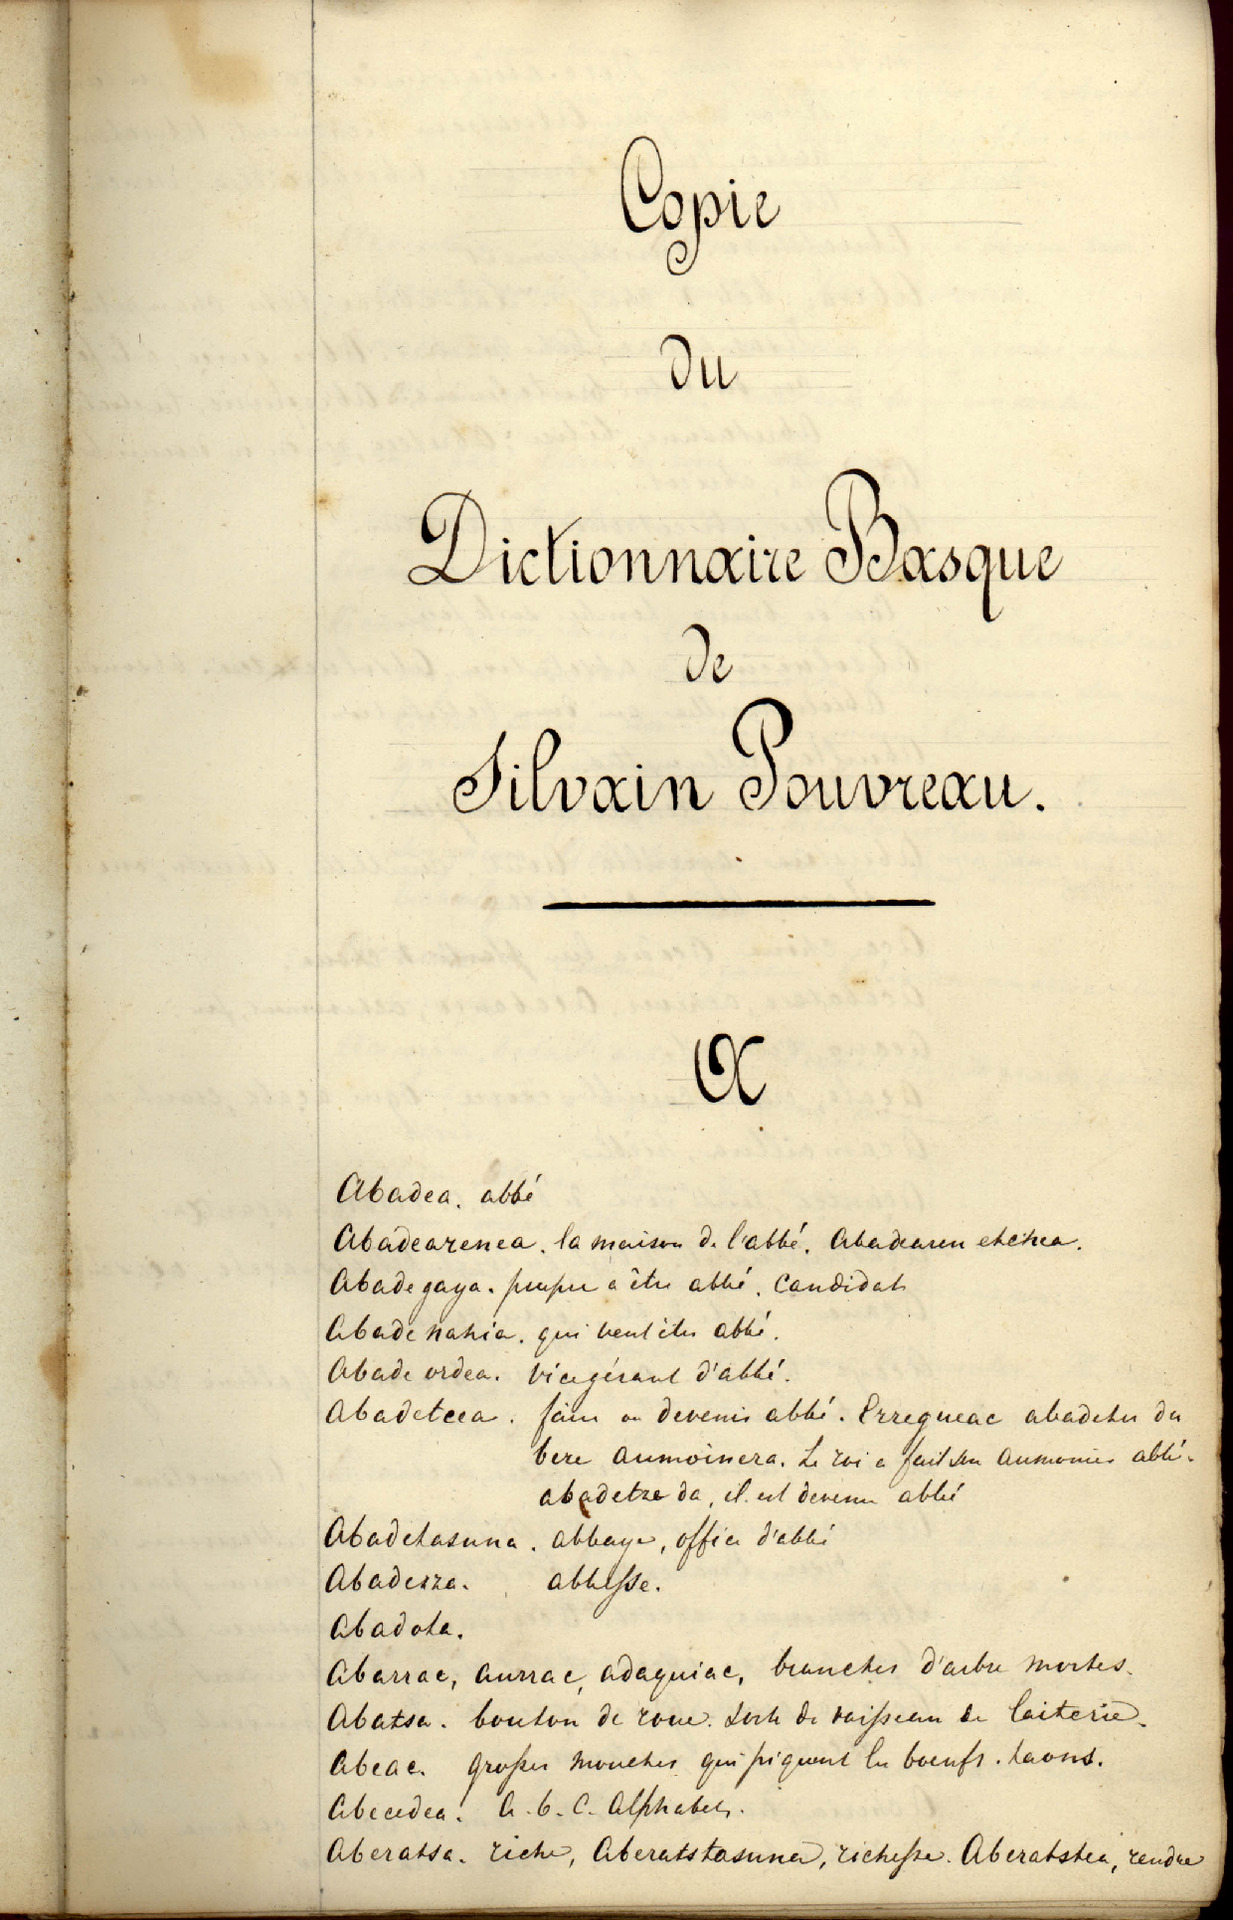 Copie
du
Dictionnaire Basque
de
Silvain Pouvreau.
A
Abadea. abbé
Abadearenea. la maison de l'abbé. Abadearen etchea.
Abadegaya. propre à être abbé. Candidat
Abade nahia. qui veut être abbé.
Abade ordea. vicegérant d'abbé.
Abadetcea. faire ou devenir abbé. Erregueac abadetu du
bere aumoinera. Le roi a fait son aumonier abbé.
abadetze da, il est devenu abbé
Abadetasuna. abbaye, office d'abbé
Abadezza. abbesse.
Abadota.
Abarrac, aurrac, adaquiac, branches d'arbre mortes.
Abatsa. bouton de roue. Sorte de vaisseau de laiterie.
Abeac. grosses mouches qui piquent les boeufs. taons.
Abecedea. A. b. c. Alphabet.
Aberatsa. riche, Aberatstasuna, richesse. Aberatstea, rendre